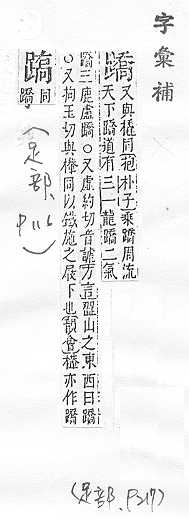 字彙補
蹻
又與橇同抱朴子乘蹻周流
天下蹻道有三一龍蹻二氣
蹻三鹿盧蹻○又虛約切音謔方言山之東西曰蹻
○又拘玉切與檋同以鐵施之屐下也韻會檋亦作蹻
𨃤
同
蹻
(足部、P116)
(足部、P217)